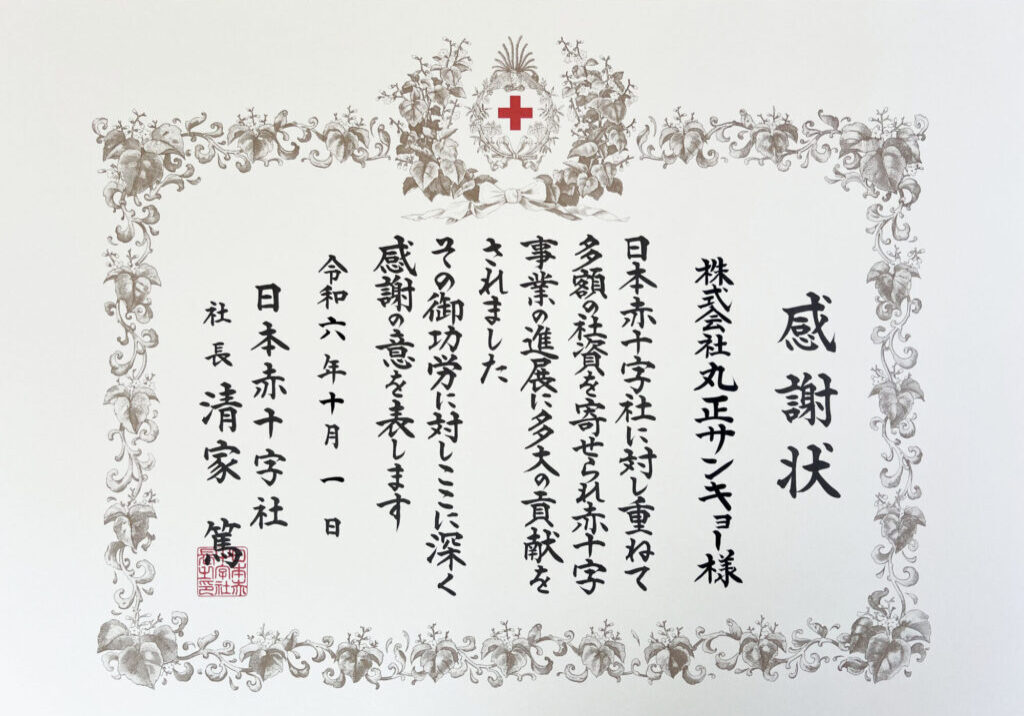 感謝状
株式会社丸正サンキョー様
日本赤十字社に対し重ねて
多額の社資を寄せられ赤十字
事業の進展に多大の貢献を
されました
その御功労に対しここに深く
感謝の意を表します
令和六年十月一日
日本赤十字社
社長 清家 篤